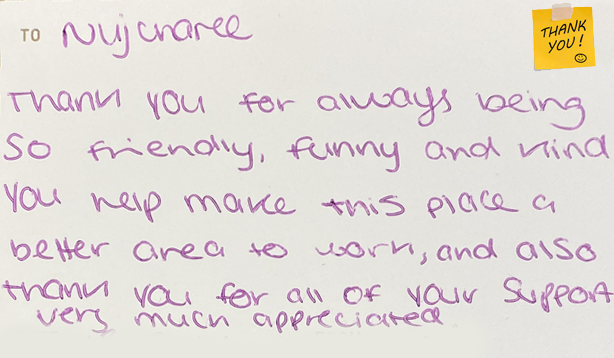 TO Nujcharee
THANK
YOU!
Thank you for always being
So friendly, funny and kind
You help make this place a
better area to work, and also
thank you for all of your support
very much appreciated